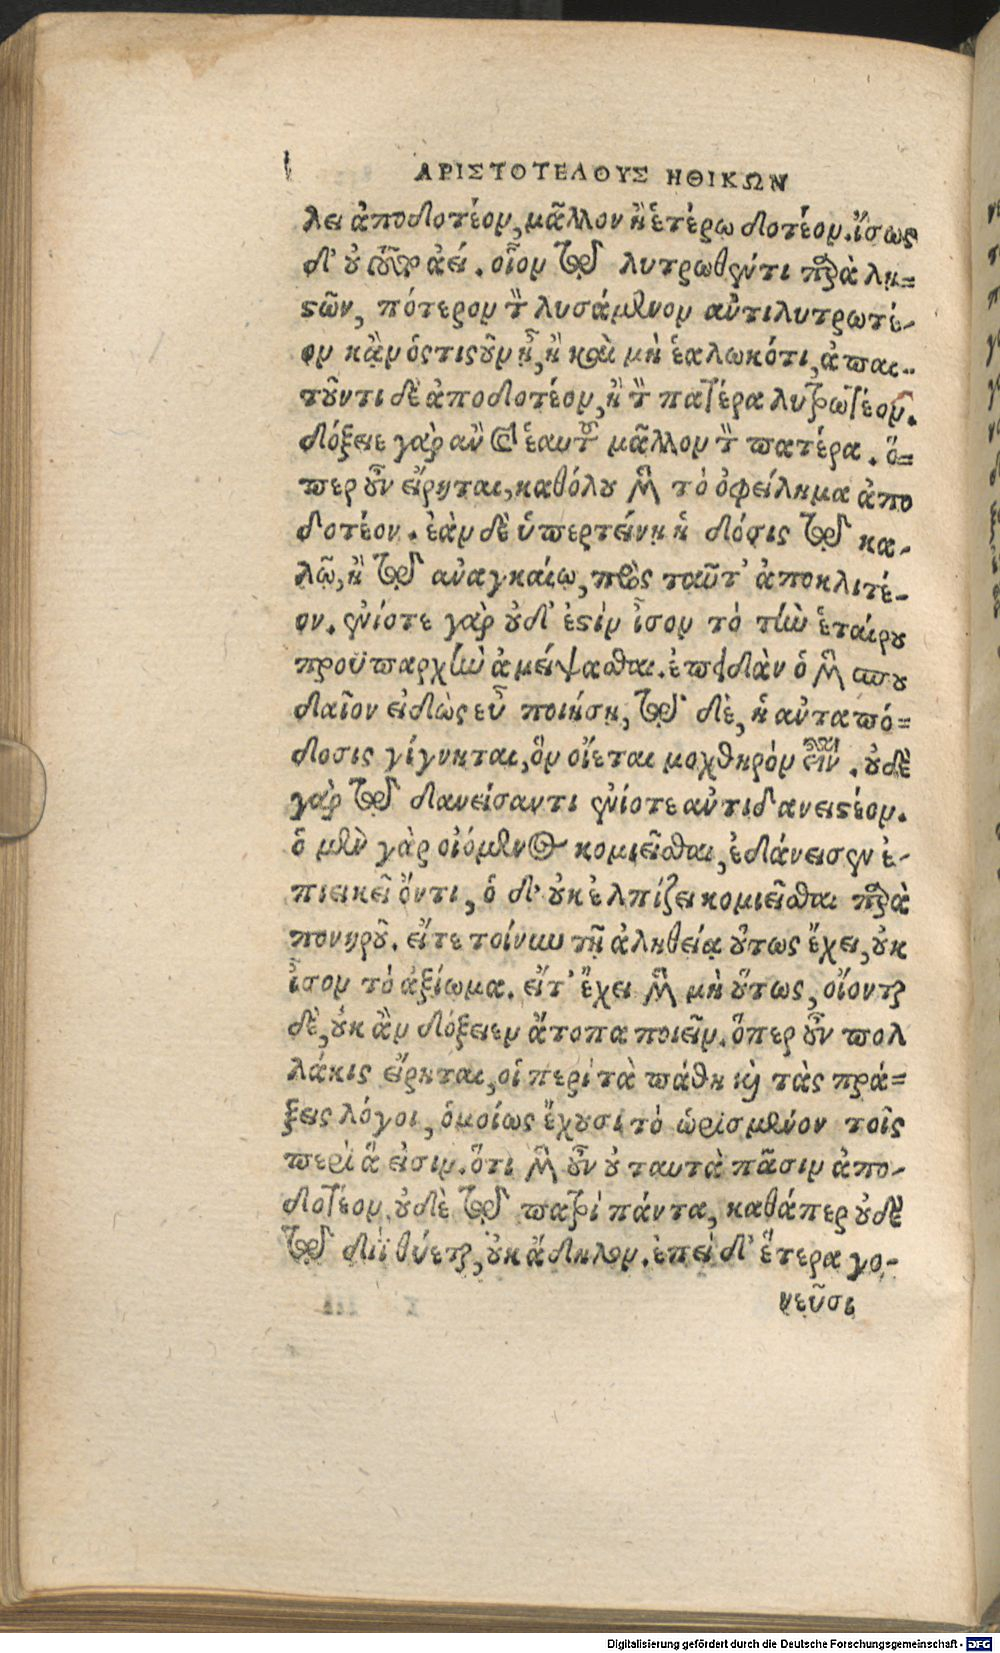 ΑΡΙΣΤΟΤΕΛΟΥΣ ΗΘΙΚΩΝ
λει ἀποδοτέον, μᾶλλον ἢ ἑτέρῳ δοτέον. ἴσως
δ' οὐδὲ ἀεί. οἷον τῷ λυτρωθέντι παρὰ λη=
στῶν, πότερον τὸν λυσάμενον ἀντιλυτρωτέ-
ον κἂν ὁστισοῦν ᾖ, ἢ καὶ μὴ ἑαλωκότι, ἀπαι-
τοῦντι δὲ ἀποδοτέον, ἢ τὸν πατέρα λυτρωτέον.
δόξειε γὰρ ἂν καὶ ἑαυτοῦ μᾶλλον τὸν πατέρα. ὅ=
περ οὖν εἴρηται, καθόλου μὲν τὸ ὀφείλημα ἀπο
δοτέον. ἐὰν δὲ ὑπερτείνῃ ἡ δόσις τῷ κα-
λῷ, ἢ τῷ ἀναγκαίῳ, πρὸς ταῦτ' ἀποκλιτέ-
ον. ἐνίοτε γὰρ οὐδ' ἐστὶν ἴσον τὸ τὴν ἑταίρου
προϋπαρχὴν ἀμείψασθαι. ἐπειδὰν ὁ μὲν σπου
δαῖον εἰδὼς εὖ ποιήσῃ, τῷ δὲ, ἡ ἀνταπό=
δοσις γίγνηται, ὃν οἴεται μοχθηρὸν εἶναι. οὐδὲ
γὰρ τῷ δανείσαντι ἐνίοτε ἀντιδανειστέον.
ὁ μὲν γὰρ οἰόμενος κομιεῖσθαι, ἐδάνεισεν ἐ-
πιεικεῖ ὄντι, ὁ δ' οὐκ ἐλπίζει κομιεῖσθαι παρὰ
πονηροῦ. εἴτε τοίνυν τῇ ἀληθείᾳ οὕτως ἔχει, οὐκ
ἴσον τὸ ἀξίωμα. εἴτ' ἔχει μὲν μὴ οὕτως, οἴονται
δὲ, οὐκ ἂν δόξειεν ἄτοπα ποιεῖν. ὅπερ οὖν πολ
λάκις εἴρηται, οἱ περὶ τὰ πάθη καὶ τὰς πρά=
ξεις λόγοι, ὁμοίως ἔχουσι τὸ ὡρισμένον τοῖς
περὶ ἅ εἰσιν. ὅτι μὲν οὖν οὐ ταυτὰ πᾶσιν ἀπο-
δοτέον, οὐδὲ τῷ πατρὶ πάντα, καθάπερ οὐδὲ
τῷ διῒ θύεται, οὐκ ἄδηλον. ἐπεὶ δ' ἕτερα γο-
νεῦσι
Digitalisierung gefördert durch die Deutsche Forschungsgemeinschaft - DFG